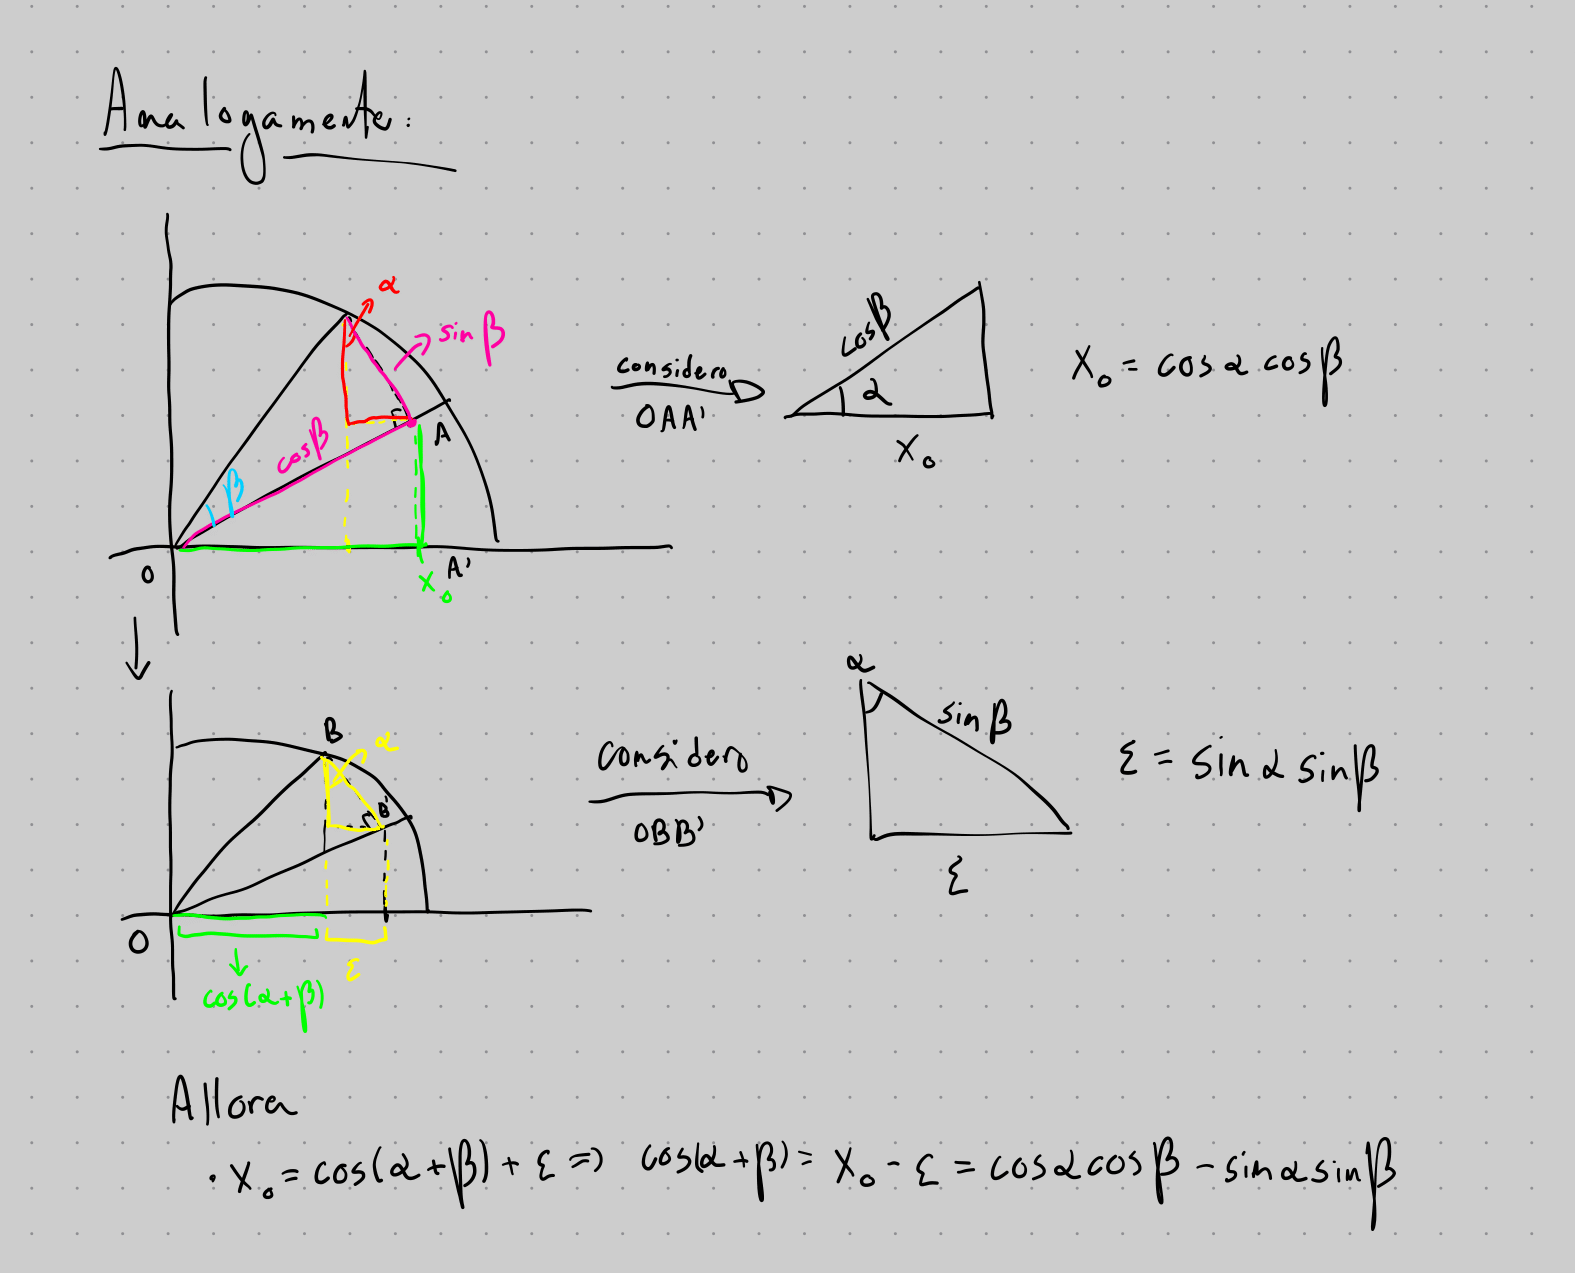 Analogamente:
α
sin β
cosβ
β
A
O
A'
x₀
considero
OAA'
cosβ
α
x₀
x₀ = cos α cos β
B
α
B'
O
ε
cos(α+β)
Considero
OBB'
α
sin β
ε
ε = sin α sin β
Allora
· x₀ = cos(α+β) + ε => cos(α+β) = x₀ - ε = cos α cos β - sin α sin β